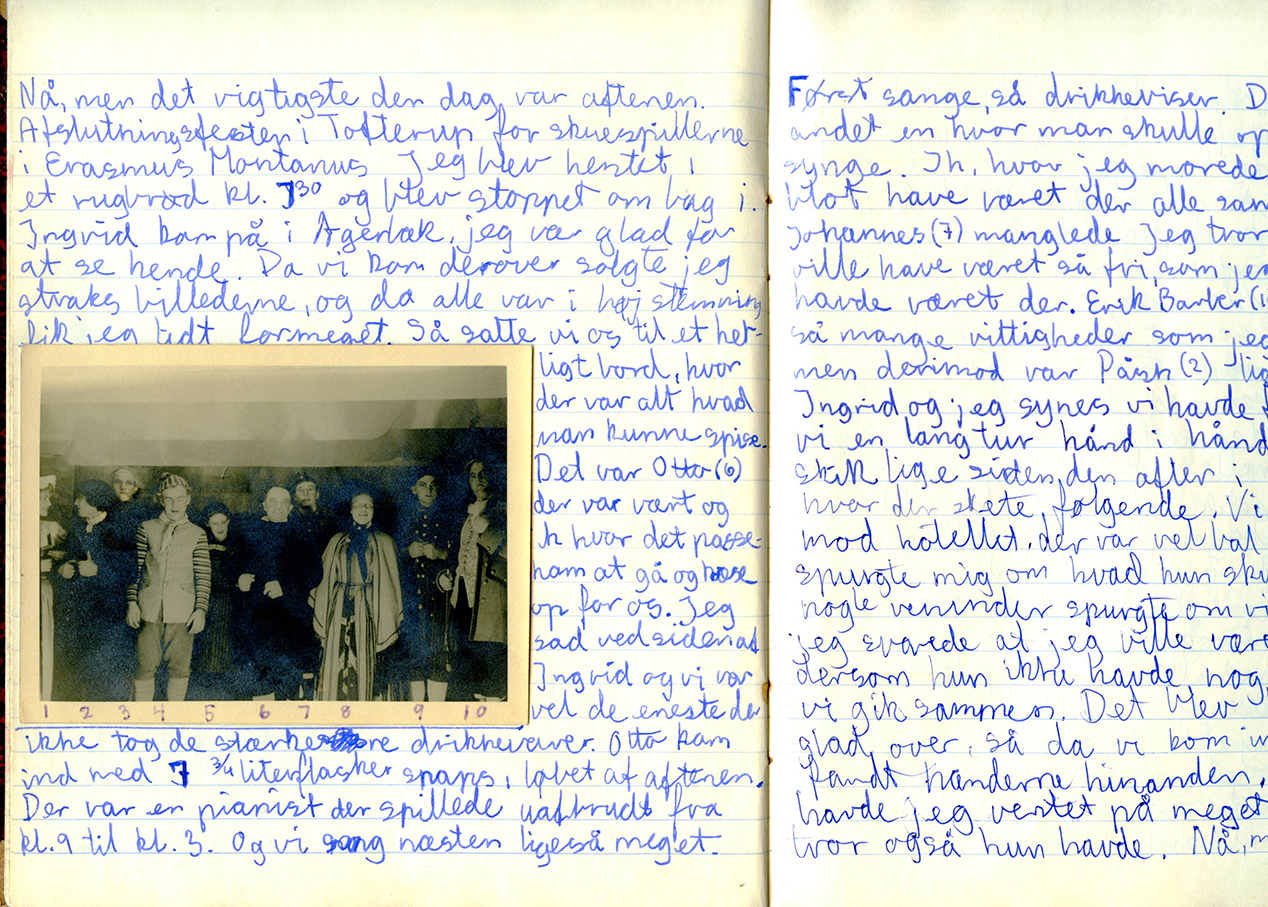 Nå, men det vigtigste den dag, var aftenen.
Afslutningsfesten i Tofterup for skuespillerne
i Erasmus Montanus Jeg blev hentet i
et rugbrød kl. 7³⁰ og blev stoppet om bag i.
Ingrid kom på i Agerbæk, jeg var glad for
at se hende. Da vi kom derover solgte jeg
straks billederne, og da alle var i høj stemning
fik jeg tidt formeget. Så satte vi os til et her-
ligt bord, hvor
der var alt hvad
man kunne spise.
Det var Otto (6)
der var vært og
hvor det passe-
ham at gå og
op for os. Jeg
sad ved siden af
Ingrid og vi var
vel de eneste der
1 2 3 4 5 6 7 8 9 10
ikke tog de stærkere drikkevarer. Otto kom
ind med 7 ¾ literflasker snaps i løbet af aftenen.
Der var en pianist der spillede uafbrudt fra
kl. 9 til kl. 3. Og vi sang næsten ligeså meget.
Først sange, så drikkeviser. D
andet en hvor man skulle op
synge. Ih, hvor jeg morede
blot have været der alle sam
Johannes (7) manglede Jeg tror
ville have været så fri, som jeg
havde været der. Erik Barker (1
så mange vittigheder som jeg
men derimod var Påsk (2) lig
Ingrid og jeg synes vi havde
vi en lang tur hånd i hånd
skik lige siden den aften i
hvor der skete følgende. Vi
mod hotellet, der var vel bal
spurgte mig om hvad hun sku
nogle veninder spurgte om vi
jeg svarede at jeg ville være
dersom hun ikke havde nog
vi gik sammen. Det blev
glad over, så da vi kom in
fandt hænderne hinanden.
havde jeg ventet på meget
tror også hun havde. Nå, m